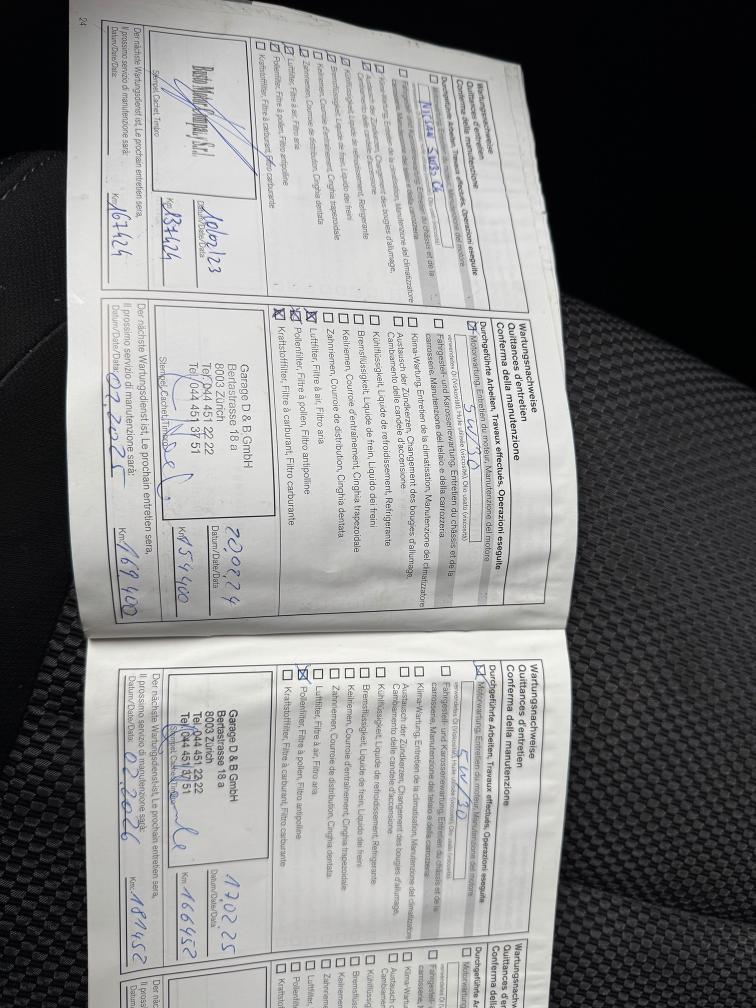 Wartungsnachweise
Quittances d'entretien
Conferma della manutenzione
Durchgeführte Arbeiten, Travaux effectués, Operazioni eseguite
NISSAN 5W30 C4
Austausch der Zündkerzen, Changement des bougies d'allumage,
Cambiamento delle candele d'accensione
Kühlflüssigkeit, Liquide de refroidissement, Refrigerante
Bremsflüssigkeit, Liquide de frein, Liquido dei freini
Keilriemen, Courroie d'entraînement, Cinghia trapezoidale
Zahnriemen, Courroie de distribution, Cinghia dentata
Luftfilter, Filtre à air, Filtro aria
Pollenfilter, Filtre à pollen, Filtro antipolline
Kraftstofffilter, Filtre à carburant, Filtro carburante
Busto Motor Company S.r.l.
Stempel, Cachet, Timbro
10/02/23
Datum/Date/Data
Km: 137424
Der nächste Wartungsdienst ist, Le prochain entretien sera,
Il prossimo servizio di manutenzione sarà:
Datum/Date/Data:
Km: 167424
24
Wartungsnachweise
Quittances d'entretien
Conferma della manutenzione
Durchgeführte Arbeiten, Travaux effectués, Operazioni eseguite
Motorwartung, Entretien du moteur, Manutenzione del motore
verwendetes Öl (Viskosität), Huile utilisée (viscosité), Olio usato (viscosità)
Fahrgestell- und Karosseriewartung, Entretien du châssis et de la
carrosserie, Manutenzione del telaio e della carrozzeria
Klima-Wartung, Entretien de la climatisation, Manutenzione del climatizzatore
Austausch der Zündkerzen, Changement des bougies d'allumage,
Cambiamento delle candele d'accensione
Kühlflüssigkeit, Liquide de refroidissement, Refrigerante
Bremsflüssigkeit, Liquide de frein, Liquido dei freini
Keilriemen, Courroie d'entraînement, Cinghia trapezoidale
Zahnriemen, Courroie de distribution, Cinghia dentata
Luftfilter, Filtre à air, Filtro aria
Pollenfilter, Filtre à pollen, Filtro antipolline
Kraftstofffilter, Filtre à carburant, Filtro carburante
Garage D & B GmbH
Bertastrasse 18 a
8003 Zürich
Tel. 044 451 22 22
Tel. 044 451 37 51
Stempel, Cachet, Timbro
Datum/Date/Data
Km: 154400
Der nächste Wartungsdienst ist, Le prochain entretien sera,
Il prossimo servizio di manutenzione sarà:
Datum/Date/Data: 02.2025
Km: 169400
Wartungsnachweise
Quittances d'entretien
Conferma della manutenzione
Durchgeführte Arbeiten, Travaux effectués, Operazioni eseguite
Motorwartung, Entretien du moteur, Manutenzione del motore
verwendetes Öl (Viskosität), Huile utilisée (viscosité), Olio usato (viscosità)
5W/30
Fahrgestell- und Karosseriewartung, Entretien du châssis et de la
carrosserie, Manutenzione del telaio e della carrozzeria
Klima-Wartung, Entretien de la climatisation, Manutenzione del climatizzatore
Austausch der Zündkerzen, Changement des bougies d'allumage,
Cambiamento delle candele d'accensione
Kühlflüssigkeit, Liquide de refroidissement, Refrigerante
Bremsflüssigkeit, Liquide de frein, Liquido dei freini
Keilriemen, Courroie d'entraînement, Cinghia trapezoidale
Zahnriemen, Courroie de distribution, Cinghia dentata
Luftfilter, Filtre à air, Filtro aria
Pollenfilter, Filtre à pollen, Filtro antipolline
Kraftstofffilter, Filtre à carburant, Filtro carburante
Garage D & B GmbH
Bertastrasse 18 a
8003 Zürich
Tel. 044 451 22 22
Tel. 044 451 37 51
Stempel, Cachet, Timbro
17.02.25
Datum/Date/Data
Km: 166452
Der nächste Wartungsdienst ist, Le prochain entretien sera,
Il prossimo servizio di manutenzione sarà:
Datum/Date/Data: 02.2026
Km: 181452
Wartungsnachw
Quittances d'e
Conferma della m
Durchgeführte A
Motorwartun